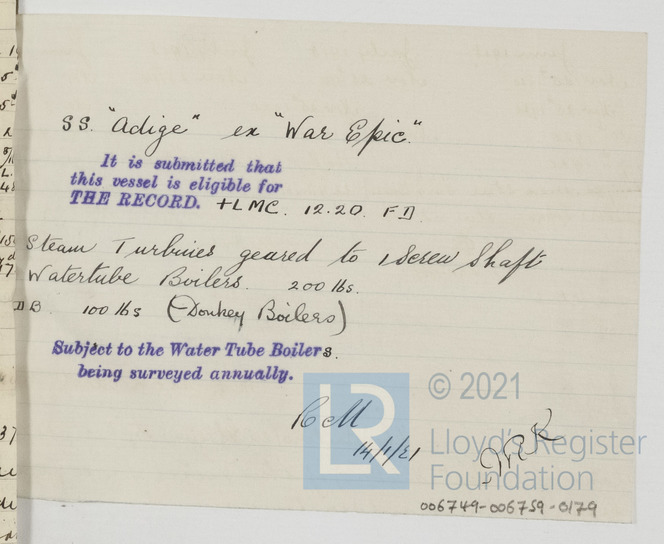 SS. "Adige" ex "War Epic."
It is submitted that
this vessel is eligible for
THE RECORD. +LMC. 12.20. FD.
Steam Turbines geared to 1 Screw Shaft
Watertube Boilers. 200 lbs.
DB 100 lbs (Donkey Boilers)
Subject to the Water Tube Boilers.
being surveyed annually.
LR
© 2021
Lloyd's Register
Foundation
14/1/21
006749-006759-0179